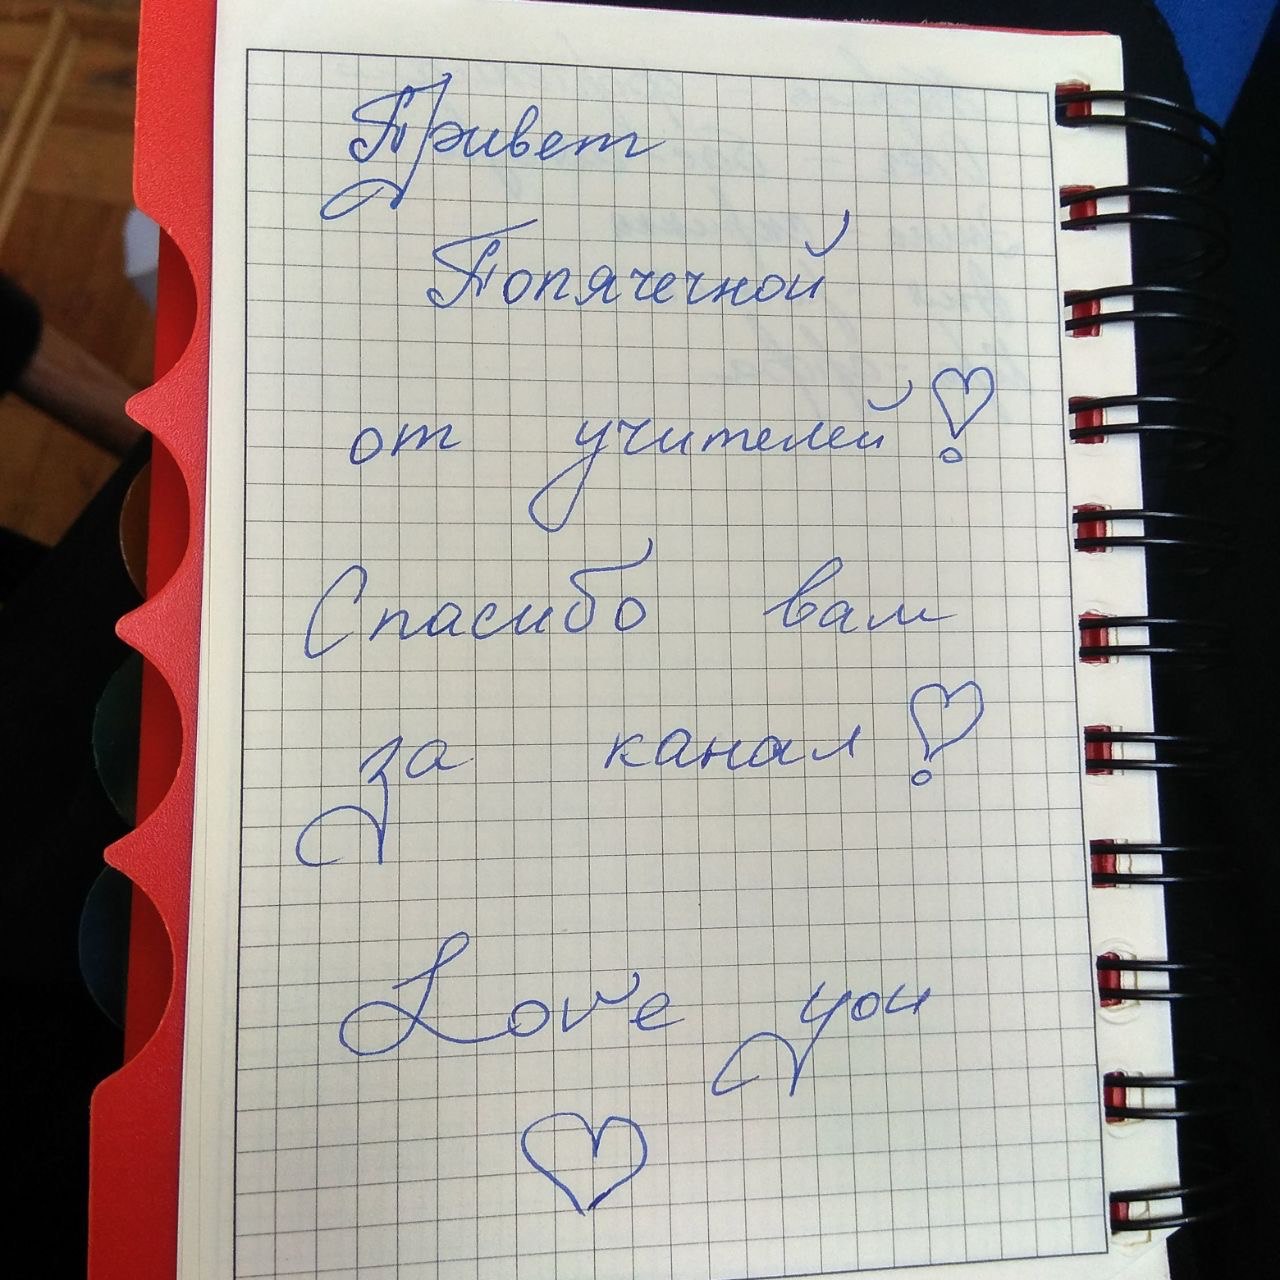 Привет
Попячечной
от учителей!
Спасибо вам
за канал!
Love you